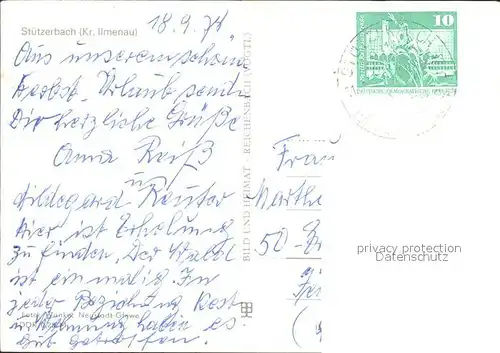 Stützerbach (Kr. Ilmenau)
18.9.74
Aus unserem schönen
Herbst-Urlaub senden
Dir herzliche Grüße
Anna Reiß
u.
Hildegard Reuter
Hier ist Erholung
zu finden. Der Wald
ist einmalig. In
jeder Beziehung Kost
u. Wohnung haben es
gut getroffen.
BILD UND HEIMAT · REICHENBACH (VOGTL)
10
DEUTSCHE DEMOKRATISCHE REPUBLIK
Frau
Martha
50
privacy protection
Datenschutz